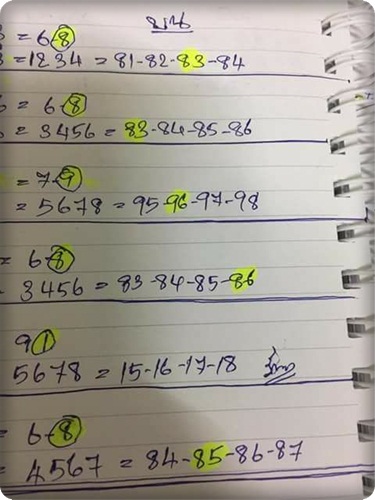 บน
= 6-8
= 1234 = 81-82-83-84
= 6-8
= 3456 = 83-84-85-86
= 7-9
= 5678 = 95-96-97-98
= 6-8
- 3456 = 83-84-85-86
91
5678 = 15-16-17-18
= 6-8
= 4567 = 84-85-86-87